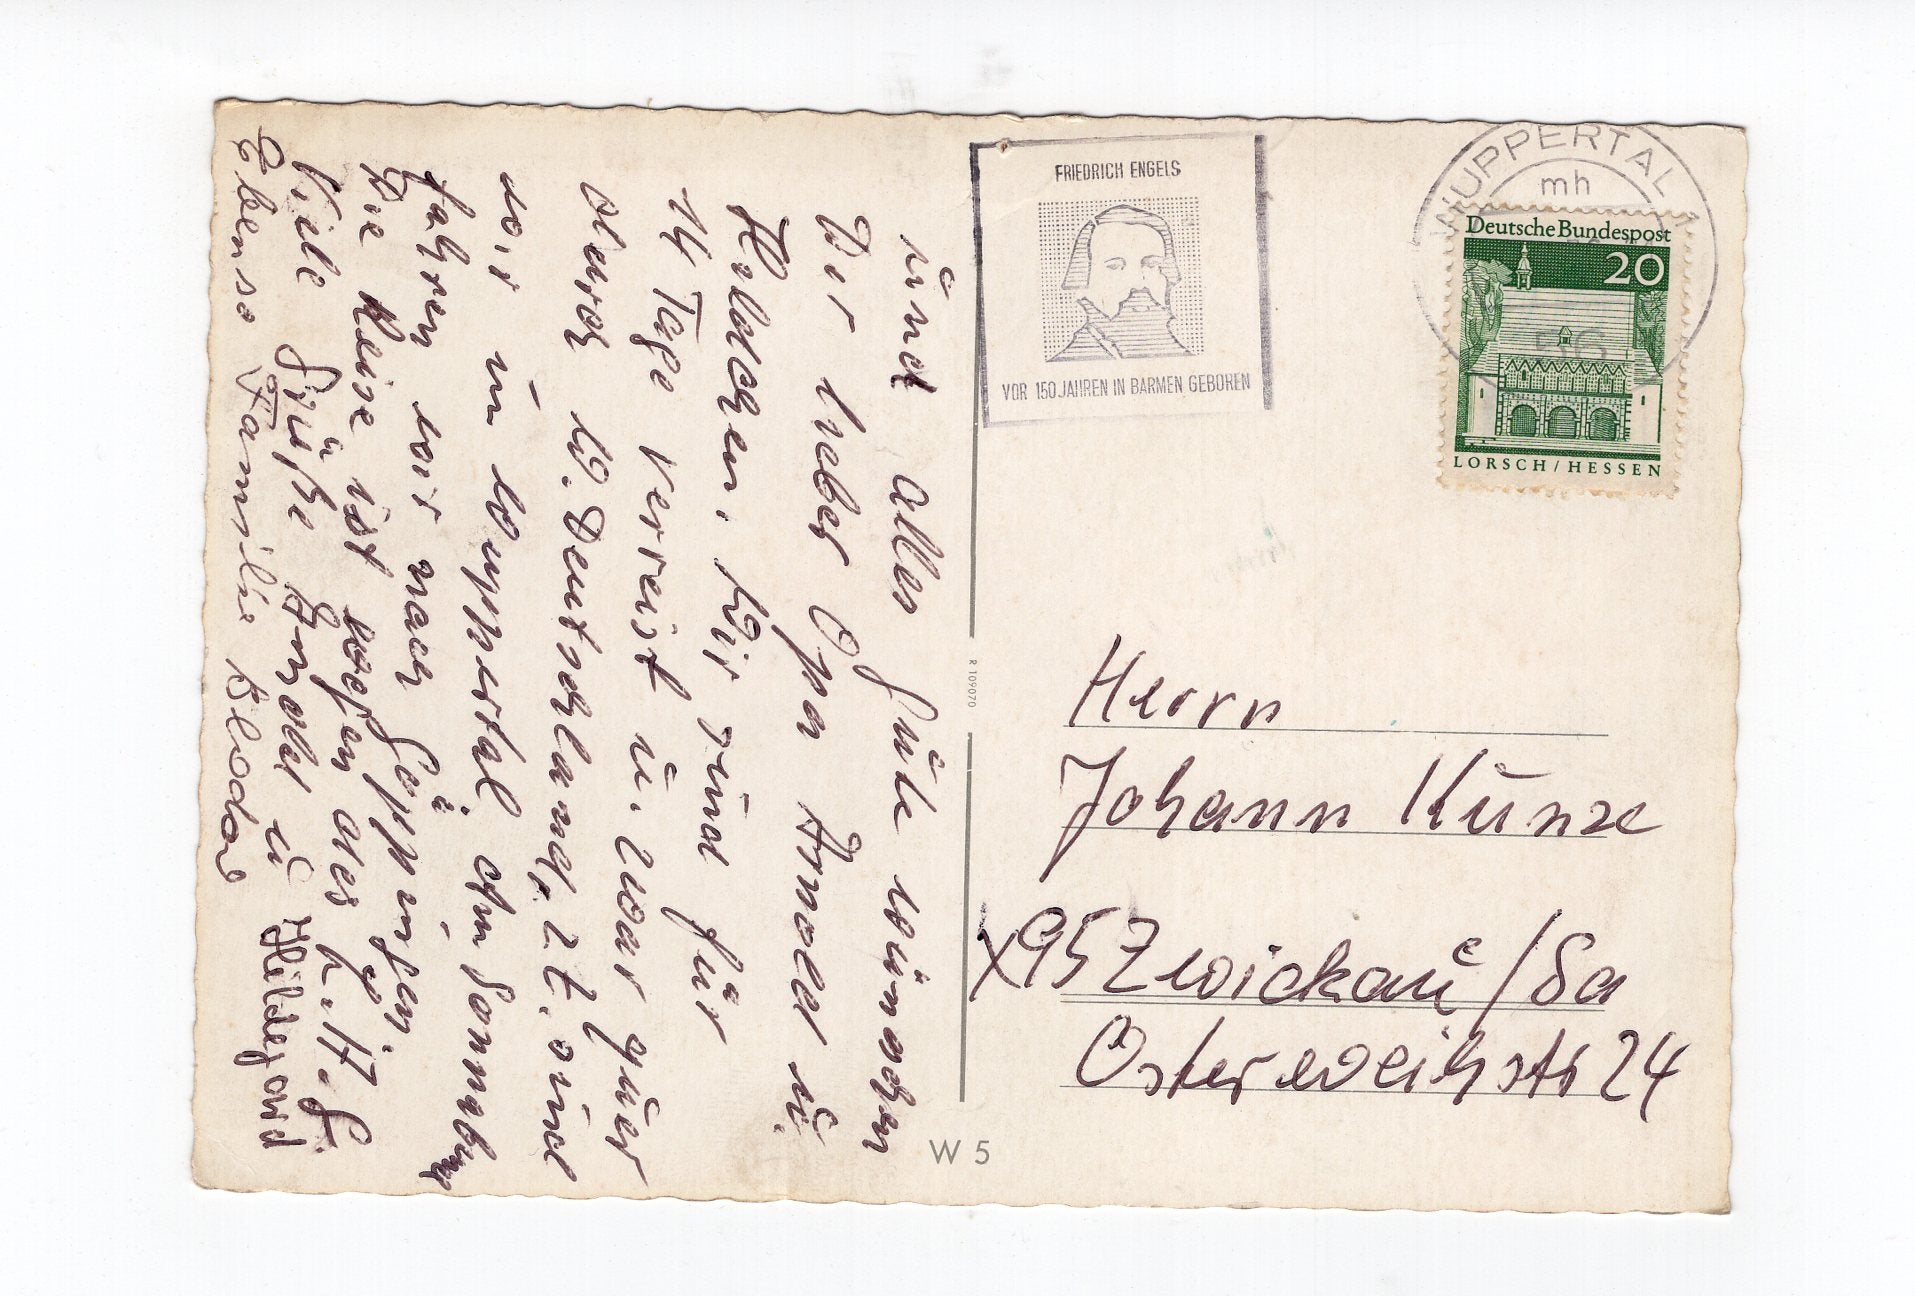 und alles Gute wünschen
Dir lieber Opa Arnold u.
Holdchen. Wir sind für
14 Tage verreist u. zwar quer
durch W. Deutschland, z.t. sind
wir in Wuppertal Am Sonnabend
fahren wir nach Göppingen.
Die Reise ist wegen des
Viele Grüße Arnold u Hildegard
Ebenso Familie
FRIEDRICH ENGELS
VOR 150 JAHREN IN BARMEN GEBOREN
WUPPERTAL
mh
56
Deutsche Bundespost
20
LORSCH / HESSEN
R 109070
Herrn
Johann Kunze
X95 Zwickau / Sa
Osterweihstr 24
W 5